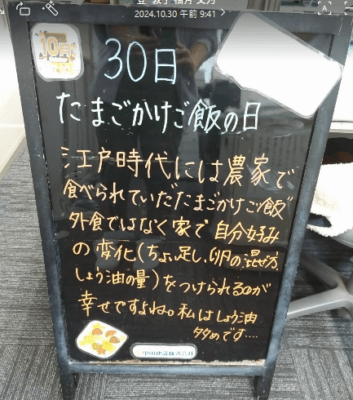 2024.10.30 午前 9:41
10月
30日
たまごかけご飯の日
江戸時代には農家で
食べられていた"たまごかけご飯"
外食ではなく家で自分好み
の変化(ちょい足し、卵の混ぜ方、
しょう油の量)をつけられるのが
幸せですよね。私はしょう油
多めです....